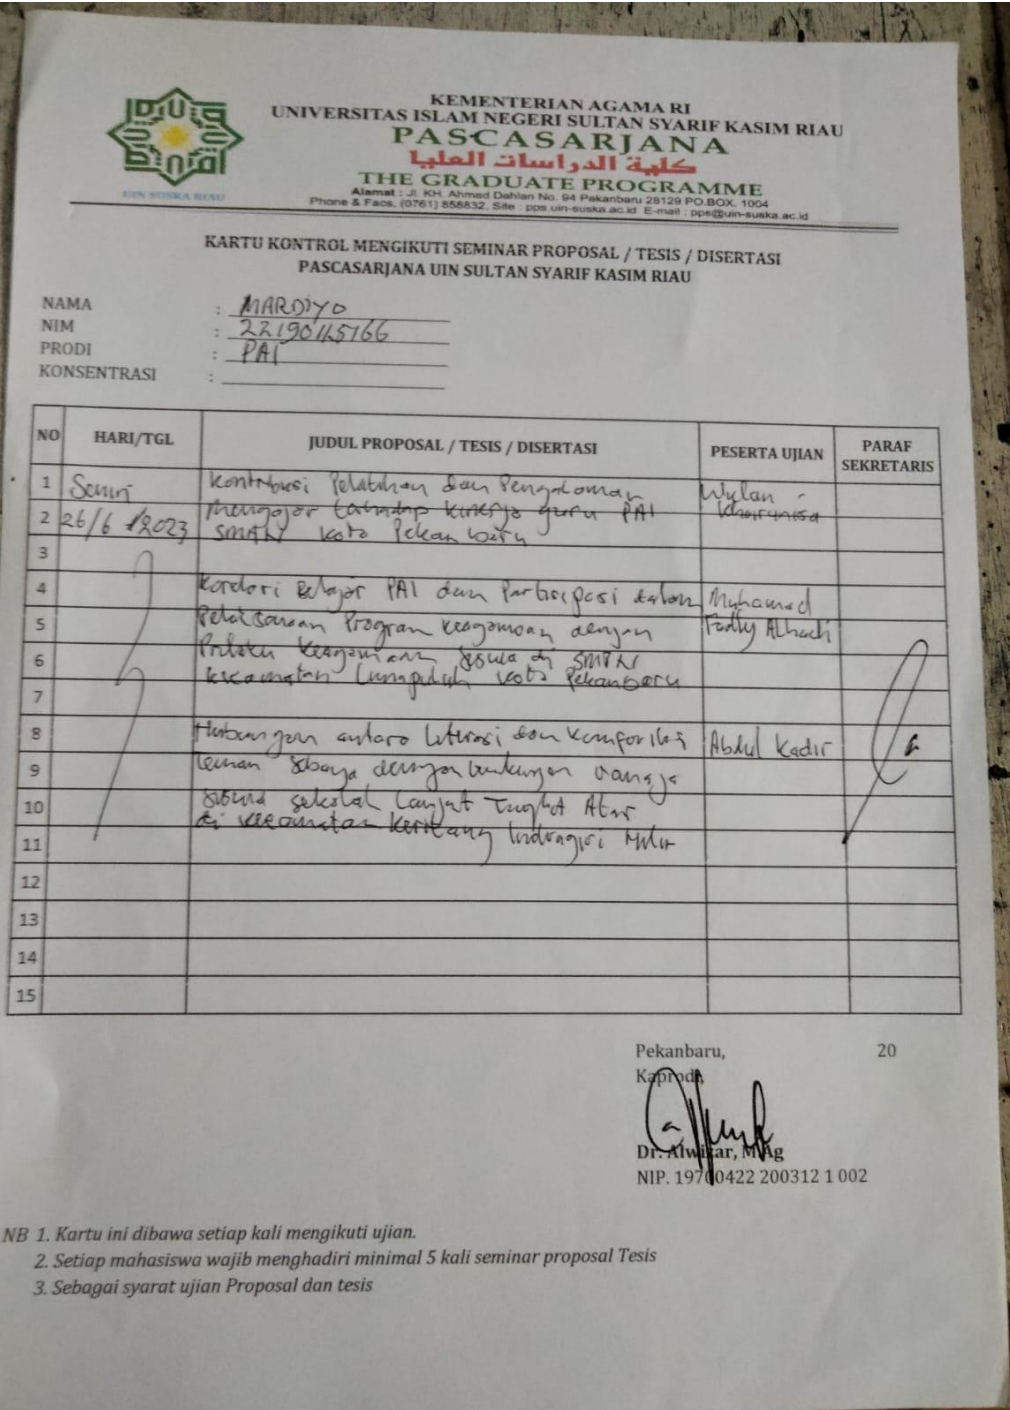 KEMENTERIAN AGAMA RI
UNIVERSITAS ISLAM NEGERI SULTAN SYARIF KASIM RIAU
PASCASARJANA
كلية الدراسات العليا
THE GRADUATE PROGRAMME
Alamat : Jl. KH. Ahmad Dahlan No. 94 Pekanbaru 28129 PO.BOX. 1004
Phone & Facs, (0761) 858832, Site : pps.uin-suska.ac.id E-mail : pps@uin-suska.ac.id
UIN SUSKA RIAU
KARTU KONTROL MENGIKUTI SEMINAR PROPOSAL / TESIS / DISERTASI
PASCASARJANA UIN SULTAN SYARIF KASIM RIAU
NAMA : MARDIYO
NIM :
PRODI : PAI
KONSENTRASI :
NO HARI/TGL JUDUL PROPOSAL / TESIS / DISERTASI PESERTA UJIAN PARAF SEKRETARIS
1 Senin Kontribusi Pelatihan dan Pengalaman Wulan
2 26/6/2023 Mengajar terhadap kinerja guru PAI Khairunisa
SMAN kota Pekanbaru
3
4 Belajar PAI dan Partisipasi dalam Muhamad
5 Pelaksanaan Program Keagamaan dengan Fadly
6 Prilaku Keagamaan siswa di SMPN
kecamatan kota Pekanbaru
7
8 Hubungan antara dan Abdul Kadir
9 teman sebaya dengan
10 siswa sekolah Lanjut Tingkat Atas
di kecamatan Keritang Indragiri Hilir
11
12
13
14
15
Pekanbaru, 20
Kaprodi,
Dr. Alwizar, M.Ag
NIP. 19700422 200312 1 002
NB 1. Kartu ini dibawa setiap kali mengikuti ujian.
2. Setiap mahasiswa wajib menghadiri minimal 5 kali seminar proposal Tesis
3. Sebagai syarat ujian Proposal dan tesis